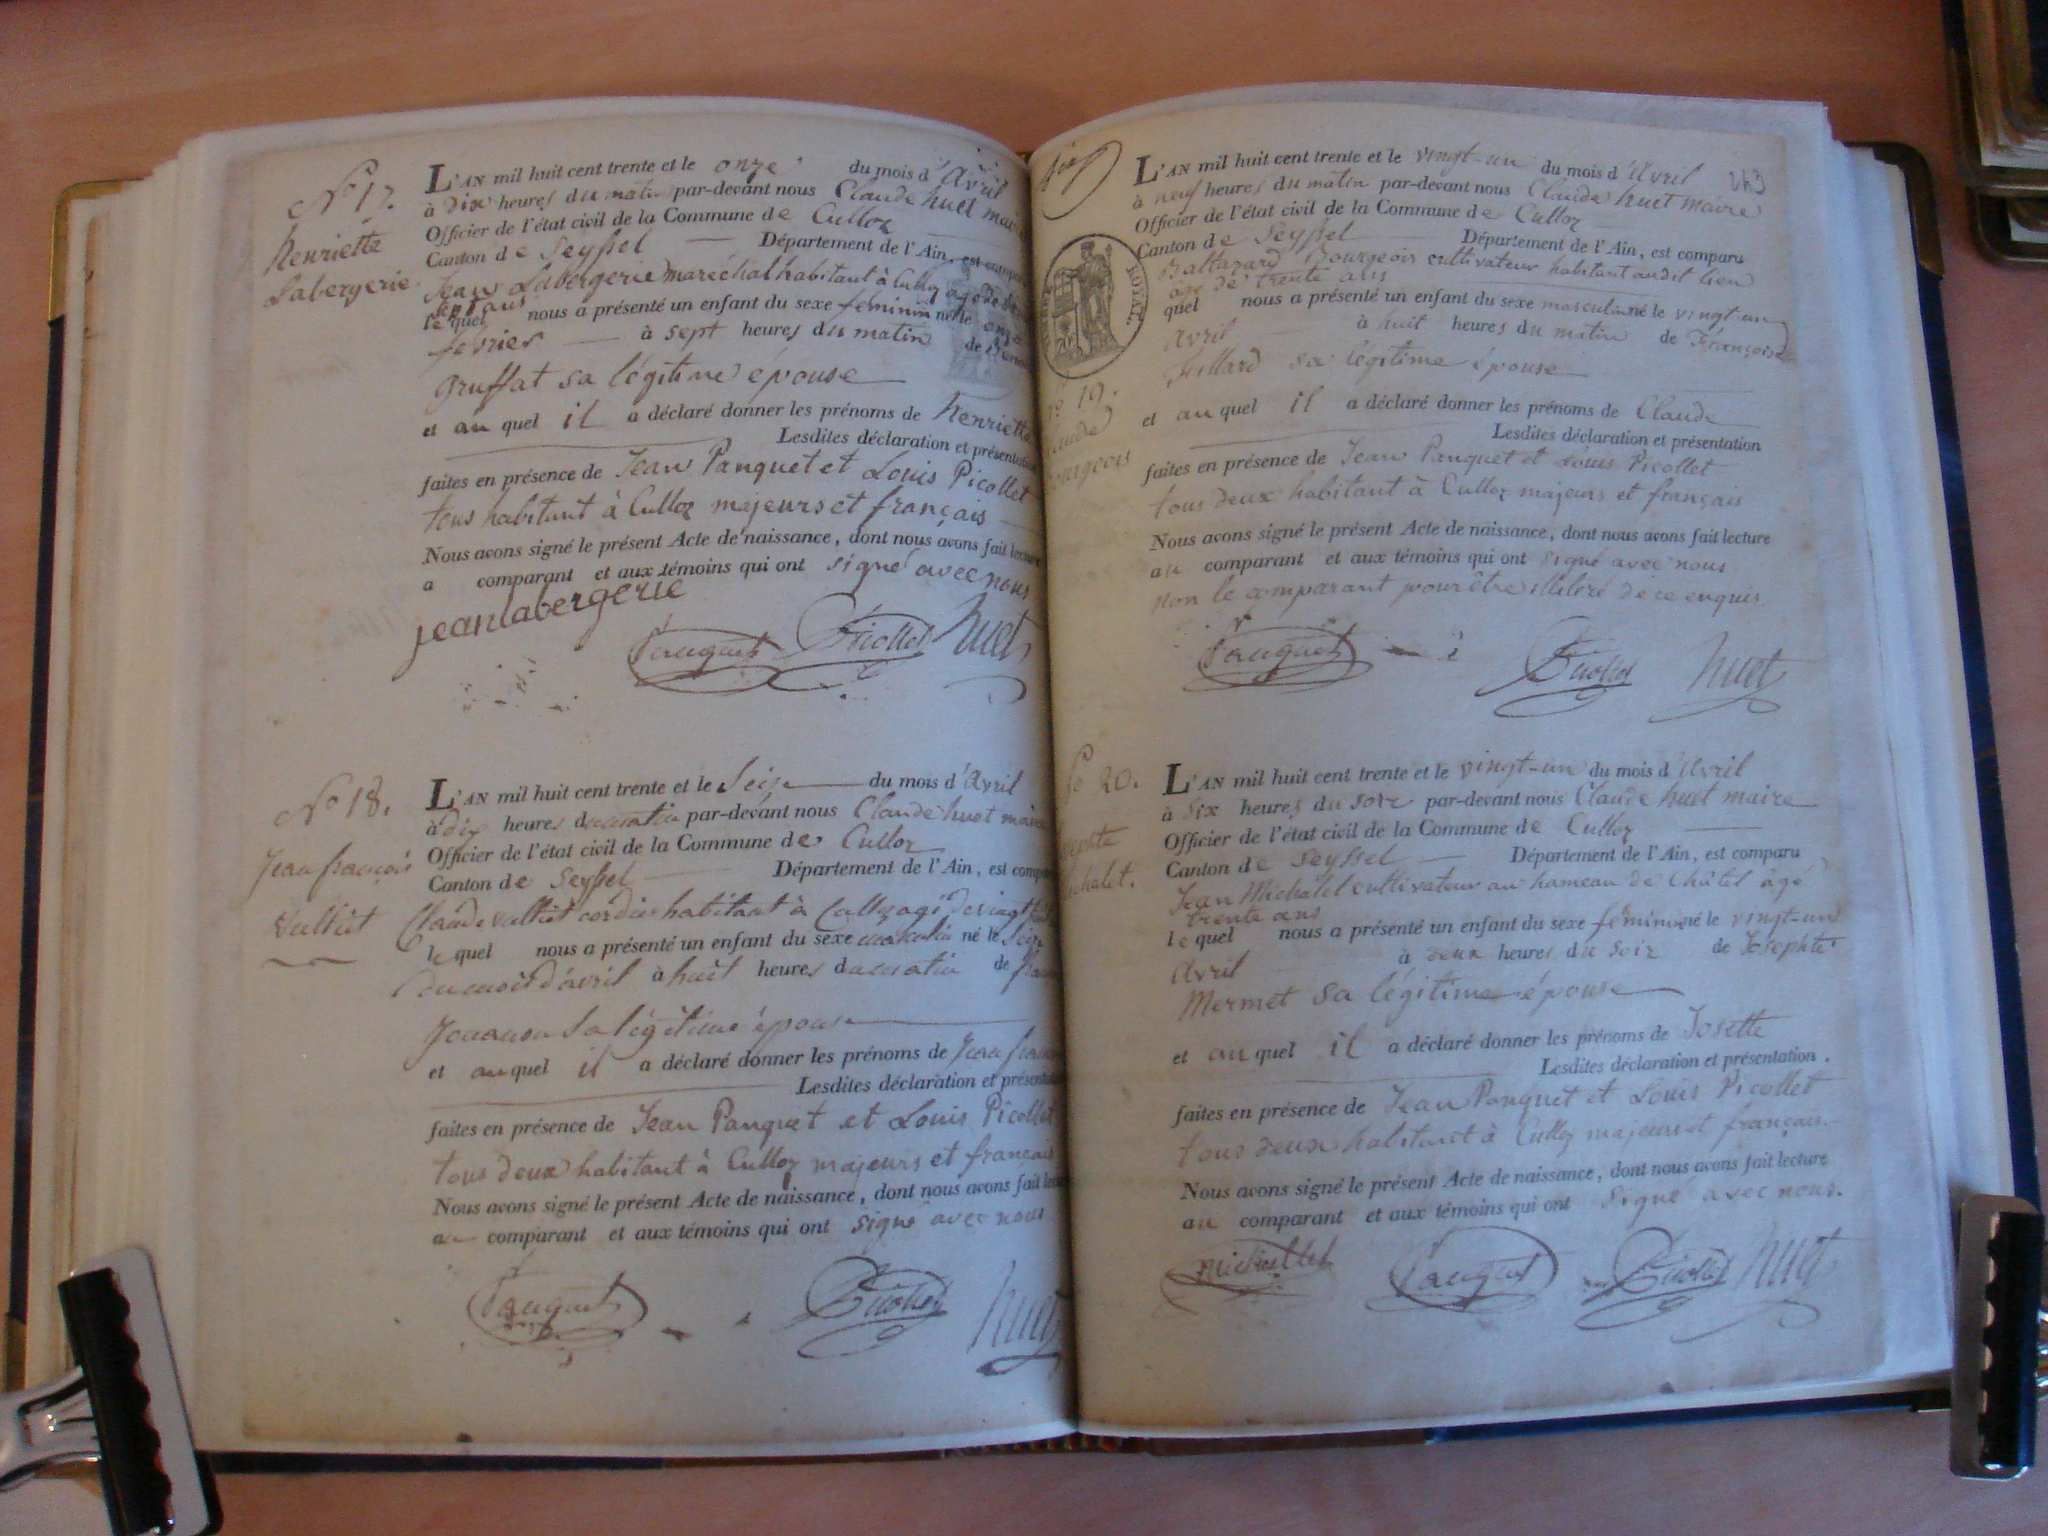 No 17.
henriette
Labergerie
L'AN mil huit cent trente et le onze du mois d'Avril
à dix heures du matin par-devant nous Claude huet maire
Officier de l'état civil de la Commune de Culloz
Canton de Seyssel Département de l'Ain, est comparu
Jean Labergerie maréchal habitant à Culloz agé de
sept ans
le quel nous a présenté un enfant du sexe feminin né le onze
fevrier à sept heures du matin de
gruffat sa légitime épouse
et au quel il a déclaré donner les prénoms de henriette
Lesdites déclaration et présentation
faites en présence de Jean Panquet et Louis Picollet
tous habitant à Culloz majeurs et français
Nous avons signé le présent Acte de naissance, dont nous avons fait lecture
a comparant et aux témoins qui ont signé avec nous
jean labergerie
Panquet Picollet huet
No 18.
Jean françois
Vulliet
L'AN mil huit cent trente et le Seize du mois d'Avril
à dix heures du matin par-devant nous Claude huet maire
Officier de l'état civil de la Commune de Culloz
Canton de Seyssel Département de l'Ain, est comparu
Claude Vulliet cordier habitant à Culloz agé de vingt
le quel nous a présenté un enfant du sexe masculin né le Seize
du mois d'avril à huit heures du matin de
sa légitime épouse
et au quel il a déclaré donner les prénoms de Jean françois
Lesdites déclaration et présentation
faites en présence de Jean Panquet et Louis Picollet
tous deux habitant à Culloz majeurs et français
Nous avons signé le présent Acte de naissance, dont nous avons fait lecture
au comparant et aux témoins qui ont signé avec nous
Panquet Picollet huet
243
ROYAL.
No 19.
Claude
Bourgeois
L'AN mil huit cent trente et le vingt-un du mois d'Avril
à neuf heures du matin par-devant nous Claude huet maire
Officier de l'état civil de la Commune de Culloz
Canton de Seyssel Département de l'Ain, est comparu
Baltazard Bourgeois cultivateur habitant audit lieu
age de trente ans
quel nous a présenté un enfant du sexe masculin né le vingt-un
Avril à huit heures du matin de Françoise
Juillard sa légitime épouse
et au quel il a déclaré donner les prénoms de Claude
Lesdites déclaration et présentation
faites en présence de Jean Panquet et Louis Picollet
tous deux habitant à Culloz majeurs et français
Nous avons signé le présent Acte de naissance, dont nous avons fait lecture
au comparant et aux témoins qui ont signé avec nous
non le comparant pour être illitéré de ce enquis.
Panquet Picollet huet
No 20.
Josephte
Michalet.
L'AN mil huit cent trente et le vingt-un du mois d Avril
à Six heures du soir par-devant nous Claude huet maire
Officier de l'état civil de la Commune de Culloz
Canton de Seyssel Département de l'Ain, est comparu
Jean Michalet cultivateur au hameau de Châtel âgé
trente ans
le quel nous a présenté un enfant du sexe féminin né le vingt-un
Avril à deux heures du soir de Josephte
Mermet sa légitime épouse
et au quel il a déclaré donner les prénoms de Josette
Lesdites déclaration et présentation.
faites en présence de Jean Panquet et Louis Picollet
tous deux habitant à Culloz majeurs et français.
Nous avons signé le présent Acte de naissance, dont nous avons fait lecture
au comparant et aux témoins qui ont signé avec nous.
michallet Panquet Picollet huet